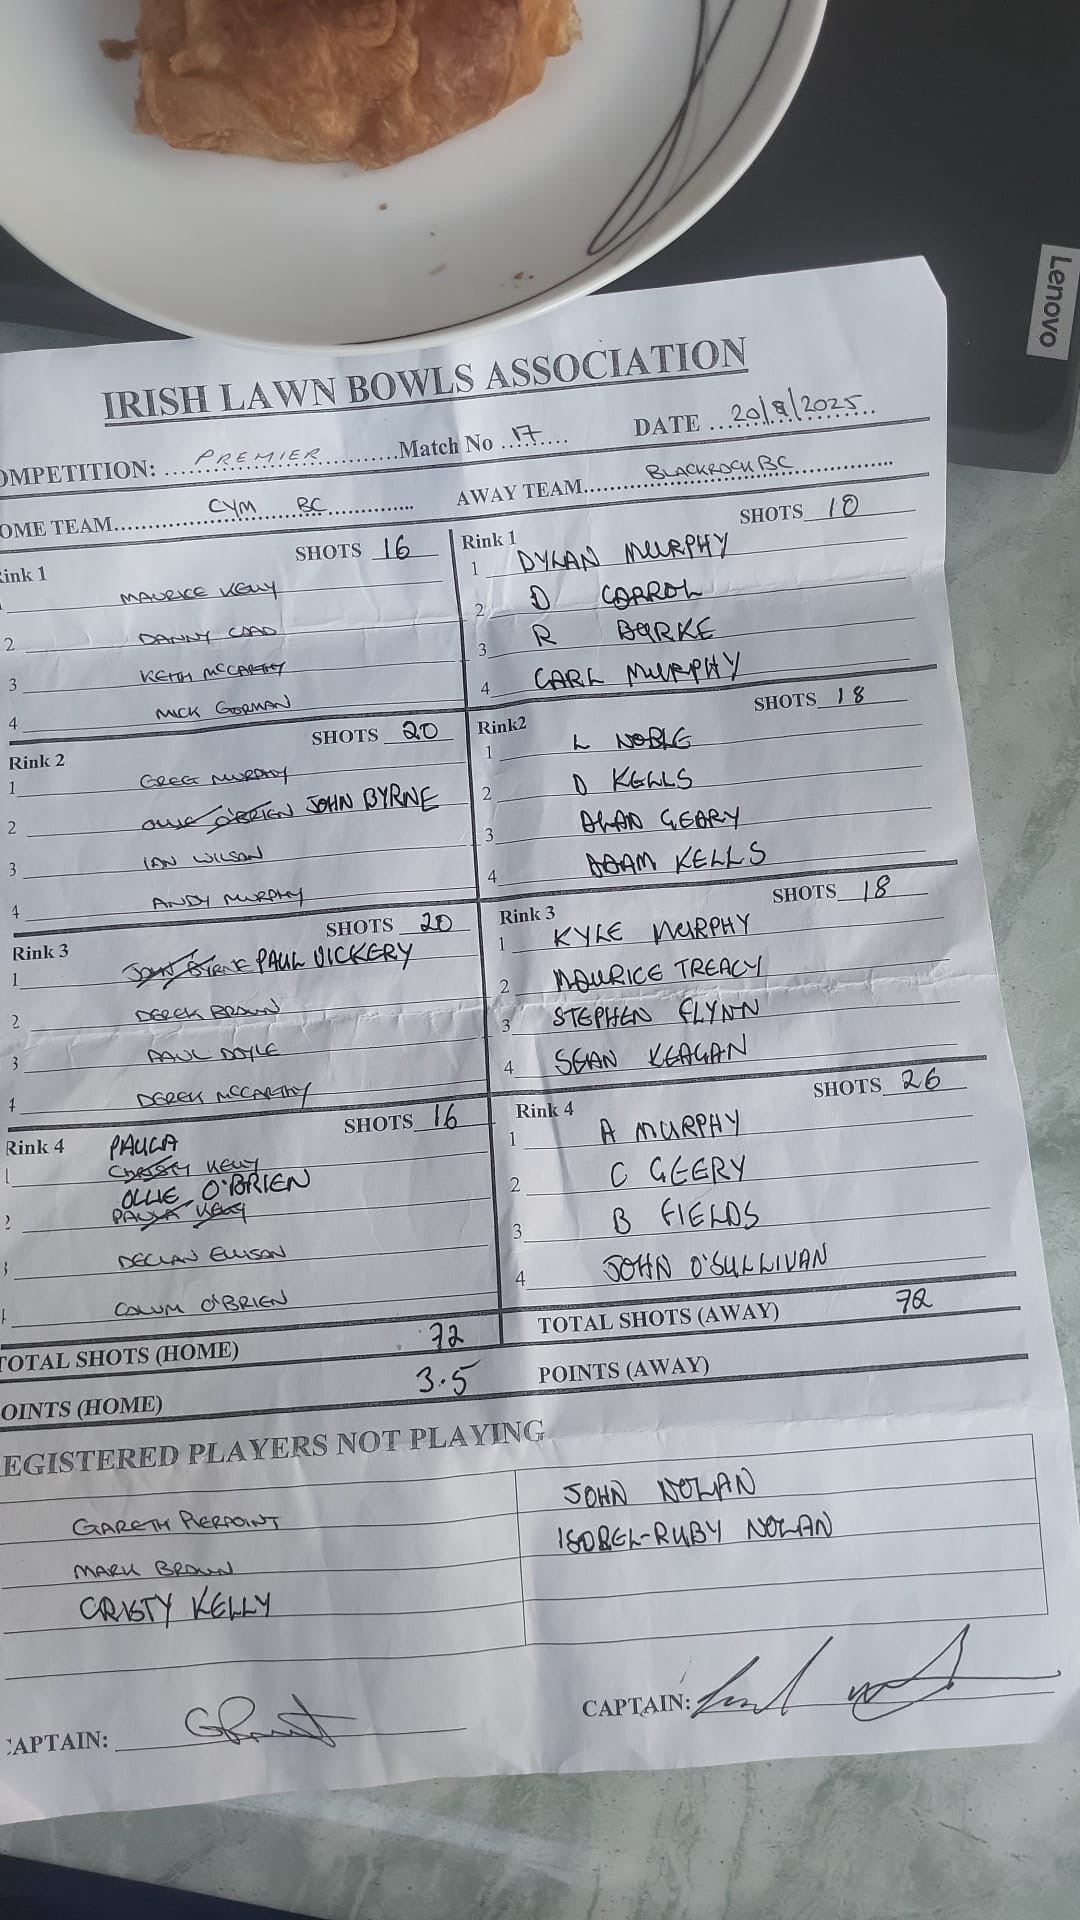 Lenovo
IRISH LAWN BOWLS ASSOCIATION
OMPETITION: PREMIER Match No 17 DATE 20/8/2025
OME TEAM CYM BC AWAY TEAM BLACKROCK BC
Rink 1 SHOTS 16
MAURICE KELLY
2 DANNY COAD
3 KEITH MCCARTHY
4 MICK GORMAN
Rink 1 SHOTS 10
1 DYLAN MURPHY
2 D CARROL
3 R BURKE
4 CARL MURPHY
Rink 2 SHOTS 20
1 GREG MURPHY
2 OLLIE O'BRIEN JOHN BYRNE
3 IAN WILSON
4 ANDY MURPHY
Rink2 SHOTS 18
1 L NOBLE
2 D KELLS
3 ALAN GEARY
4 ADAM KELLS
Rink 3 SHOTS 20
1 JOHN BYRNE PAUL VICKERY
2 DEREK BROWN
3 PAUL DOYLE
4 DEREK MCCARTHY
Rink 3 SHOTS 18
1 KYLE MURPHY
2 MAURICE TREACY
3 STEPHEN FLYNN
4 SEAN KEAGAN
Rink 4 SHOTS 16
PAULA
1 CHRISTY KELLY
OLLIE O'BRIEN
2 PAULA KELLY
3 DECLAN ELLISON
4 COLUM O'BRIEN
Rink 4 SHOTS 26
1 A MURPHY
2 C GEERY
3 B FIELDS
4 JOHN O'SULLIVAN
TOTAL SHOTS (HOME) 72
TOTAL SHOTS (AWAY) 72
OINTS (HOME) 3.5
POINTS (AWAY)
EGISTERED PLAYERS NOT PLAYING
GARETH PIERPOINT
MARK BROWN
CRISTY KELLY
JOHN NOLAN
ISOBEL-RUBY NOLAN
CAPTAIN:
CAPTAIN: